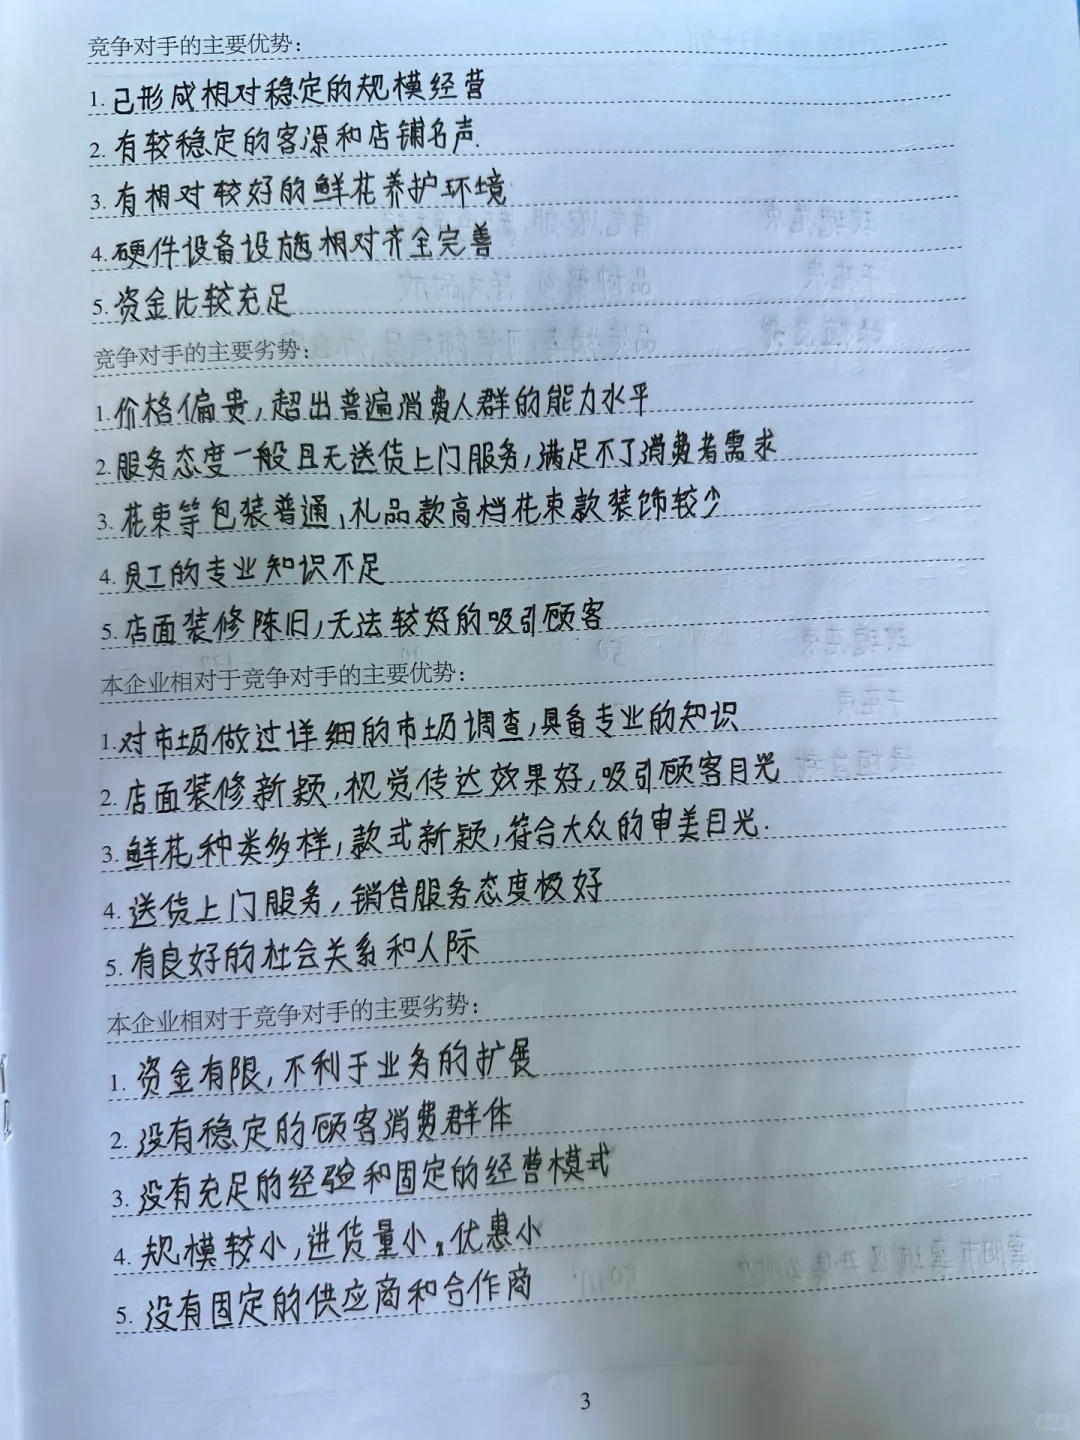 竞争对手的主要优势：
1. 已形成相对稳定的规模经营
2. 有较稳定的客源和店铺名声.
3. 有相对较好的鲜花养护环境
4. 硬件设备设施相对齐全完善
5. 资金比较充足
竞争对手的主要劣势：
1. 价格偏贵，超出普遍消费人群的能力水平
2. 服务态度一般且无送货上门服务，满足不了消费者需求
3. 花束等包装普通，礼品款高档花束款装饰较少
4. 员工的专业知识不足
5. 店面装修陈旧，无法较好的吸引顾客
本企业相对于竞争对手的主要优势：
1. 对市场做过详细的市场调查，具备专业的知识
2. 店面装修新颖，视觉传达效果好，吸引顾客目光
3. 鲜花种类多样，款式新颖，符合大众的审美目光.
4. 送货上门服务，销售服务态度极好
5. 有良好的社会关系和人际
本企业相对于竞争对手的主要劣势：
1. 资金有限，不利于业务的扩展
2. 没有稳定的顾客消费群体
3. 没有充足的经验和固定的经营模式
4. 规模较小，进货量小，优惠小
5. 没有固定的供应商和合作商
3